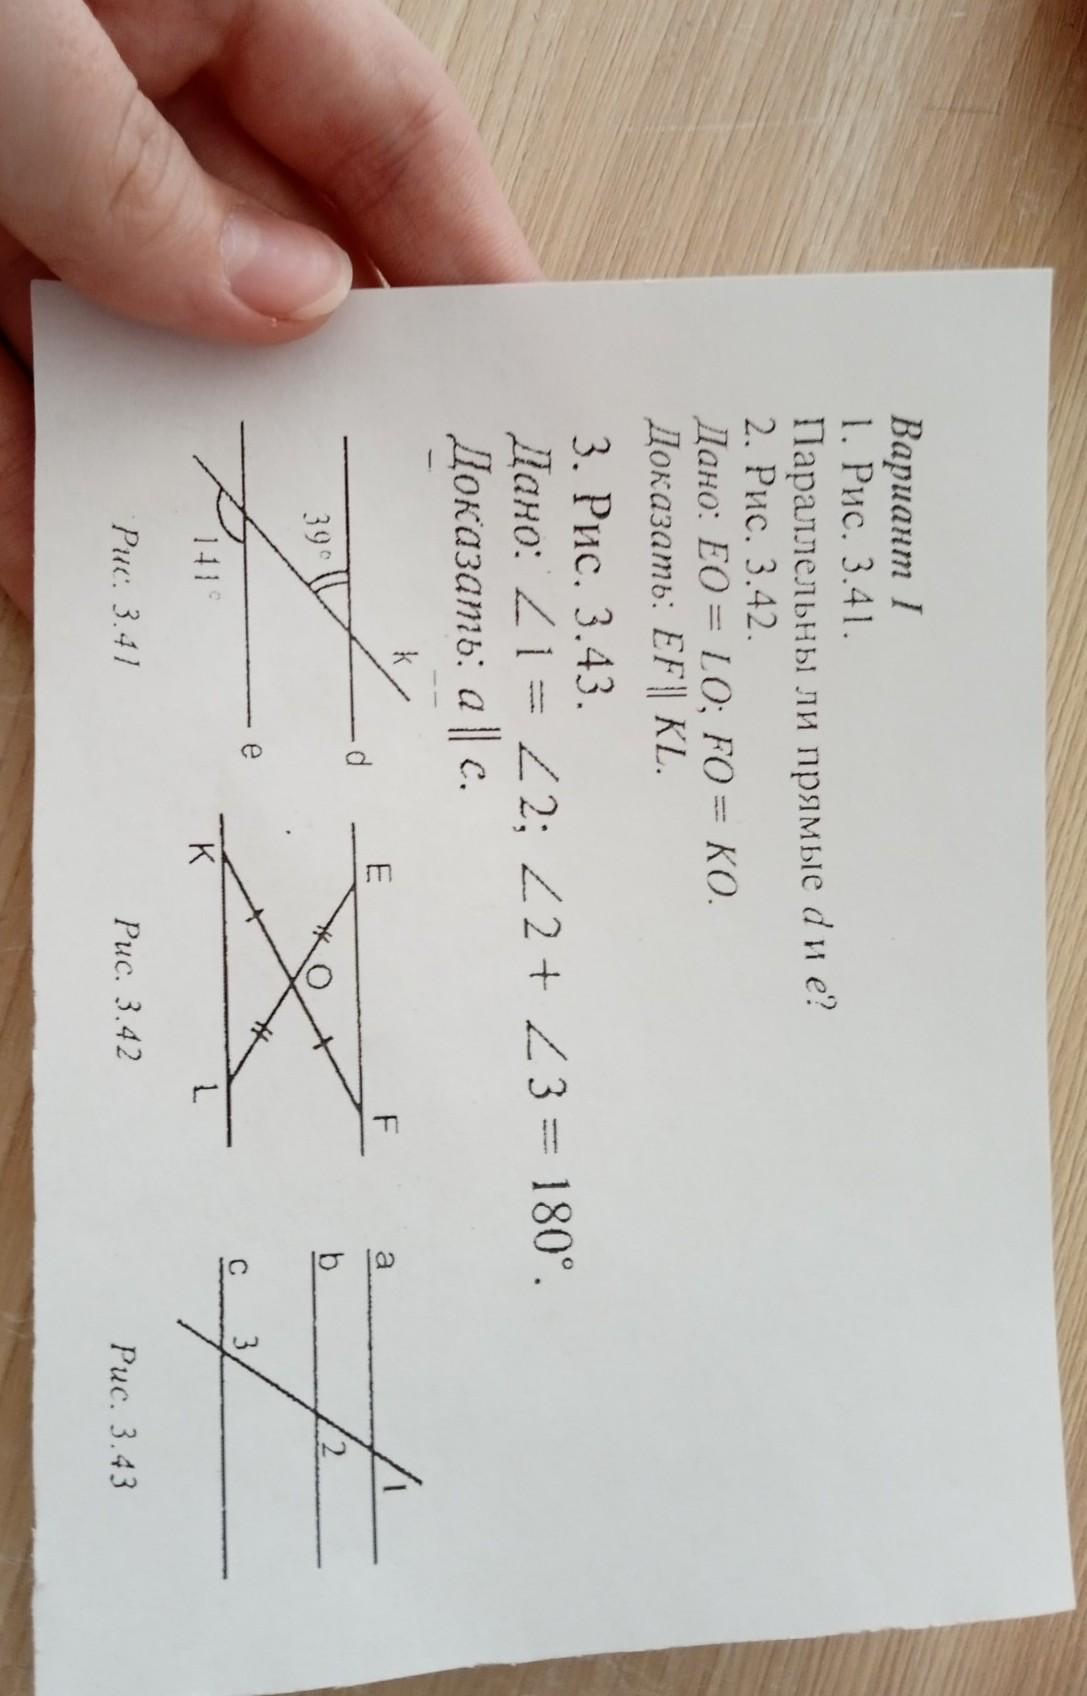 Вариант I
1. Рис. 3.41.
Параллельны ли прямые d и e?
2. Рис. 3.42.
Дано: EO = LO; FO = KO.
Доказать: EF || KL.
3. Рис. 3.43.
Дано: ∠1 = ∠2; ∠2 + ∠3 = 180°.
Доказать: a || c.
k
d
39°
e
141°
Рис. 3.41
E
F
O
K
L
Рис. 3.42
1
a
2
b
3
c
Рис. 3.43